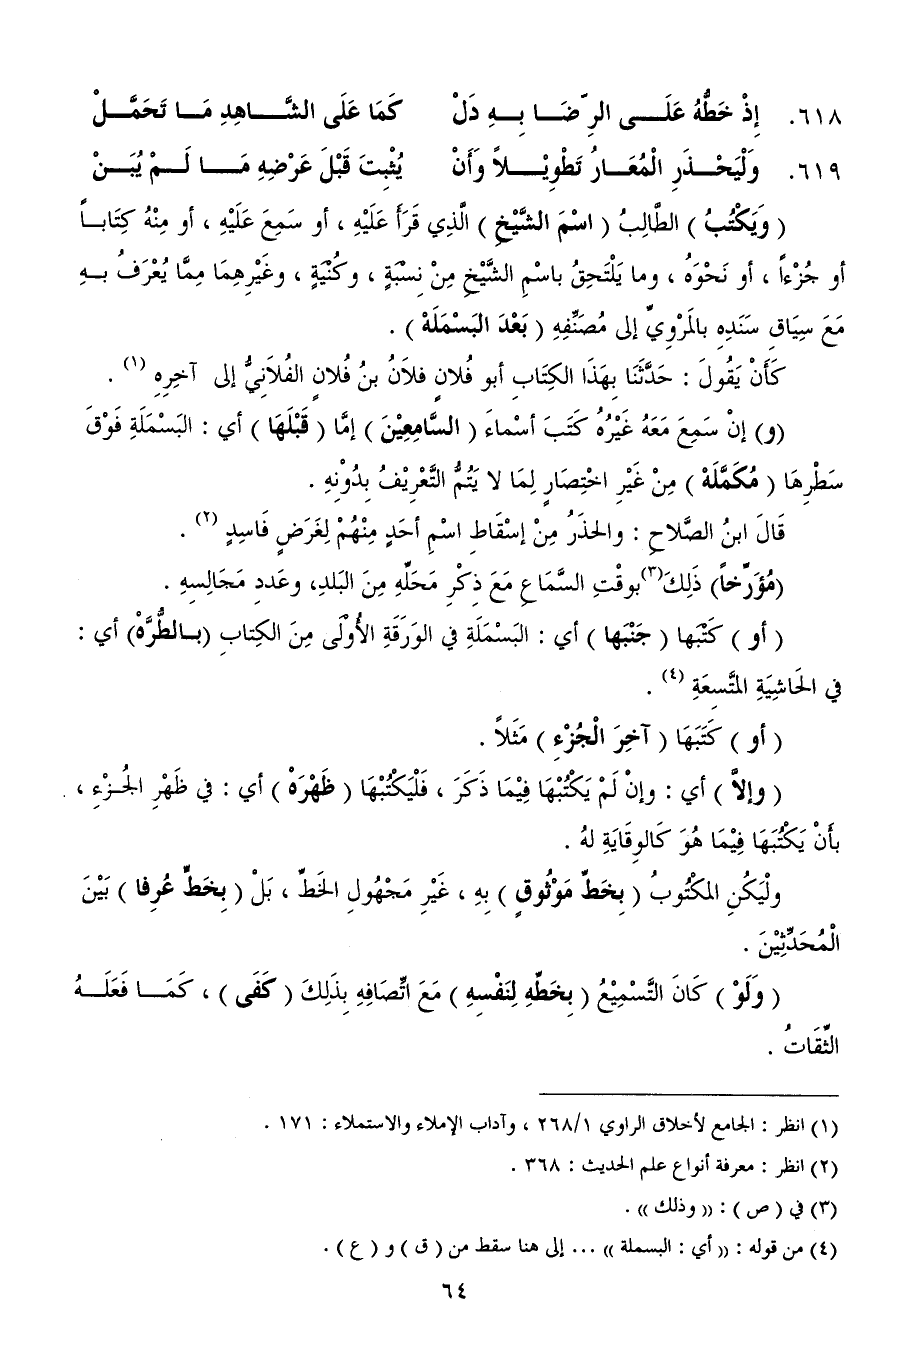 ٦١٨. إِذْ خَطُّهُ عَلَـــى الرِّضَـــا بِـــهِ دَلْ كَمَا عَلَى الشَّـــاهِدِ مَـــا تَحَمَّـــلْ
٦١٩. وَلْيَحْـــذَرِ الْمُعَـــارُ تَطْوِيْـــلاً وَأَنْ يُثْبِتَ قَبْلَ عَرْضِهِ مَـــا لَـــمْ يُبَـــنْ
( وَيَكْتُبُ ) الطَّالِبُ ( اسْمَ الشَّيْخِ ) الَّذِي قَرَأَ عَلَيْهِ ، أو سَمِعَ عَلَيْهِ ، أو مِنْهُ كِتَابـــاً
أو جُزْءاً ، أو نَحْوَهُ ، وما يَلْتَحِقُ باسْمِ الشَّيْخِ مِنْ نِسْبَةٍ ، وكُنْيَةٍ ، وغَيْرِهِمَا مِمَّا يُعْرَفُ بـــهِ
مَعَ سِيَاقِ سَنَدِهِ بالمَرْوِيِّ إلى مُصَنِّفِهِ ( بَعْدَ البَسْمَلَهْ ) .
كَأَنْ يَقُولَ : حَدَّثَنَا بِهَذَا الكِتَابِ أبو فُلانٍ فلاَنُ بنُ فُلانٍ الفُلاَنِيُّ إلى آخِرِهِ (١) .
(و) إنْ سَمِعَ مَعَهُ غَيْرُهُ كَتَبَ أسْماءَ ( السَّامِعِيْنَ ) إمَّا ( قَبْلَهَا ) أي : البَسْمَلَةِ فَوْقَ
سَطْرِهَا ( مُكَمَّلَهْ ) مِنْ غَيْرِ اخْتِصَارٍ لِمَا لا يَتُمُّ التَّعْرِيْفُ بِدُوْنِهِ .
قَالَ ابنُ الصَّلاحِ : والحَذَرُ مِنْ إسْقَاطِ اسْمِ أحَدٍ مِنْهُمْ لِغَرَضٍ فَاسِدٍ (٢) .
(مُؤَرِّخاً) ذَلِكَ(٣)بوقْتِ السَّمَاعِ مَعَ ذِكْرِ مَحَلِّهِ مِنَ البَلَدِ، وعَدَدِ مَجَالِسِهِ .
( أو ) كَتْبَها ( جَنْبَها ) أي : البَسْمَلَةِ في الوَرَقَةِ الأُوْلَى مِنَ الكِتَابِ (بـــالطُّرَّهْ) أي :
في الحَاشِيَةِ المُتَّسِعَةِ (٤) .
( أو ) كَتَبَهَا ( آخِرَ الْجُزْءِ ) مَثَلاً .
( وإلاَّ ) أي : وإنْ لَمْ يَكْتُبْهَا فِيْمَا ذَكَرَ ، فَلْيَكْتُبْهَا ( ظَهْرَهْ ) أي : في ظَهْرِ الجُـــزْءِ ،
بأَنْ يَكْتُبَهَا فِيْمَا هُوَ كَالوِقَايَةِ لهُ .
ولْيَكُنِ المَكْتُوبُ ( بِخَطِّ مَوْثُوقٍ ) بِهِ ، غَيْرِ مَجْهُولِ الخَطِّ ، بَلْ ( بِخَطٍّ عُرِفا ) بَيْنَ
الْمُحَدِّثِيْنَ .
( وَلَوْ ) كَانَ التَّسْمِيْعُ ( بِخَطِّهِ لِنَفْسِهِ ) مَعَ اتِّصَافِهِ بِذَلِكَ ( كَفَى ) ، كَمَـــا فَعَلَـــهُ
الثِّقَاتُ .
(١) انظر : الجامع لأخلاق الراوي ٢٦٨/١ ، وآداب الإملاء والاستملاء : ١٧١ .
(٢) انظر : معرفة أنواع علم الحديث : ٣٦٨ .
(٣) في ( ص ) : (( وذلك )) .
(٤) من قوله : (( أي : البسملة )) ... إلى هنا سقط من ( ق ) و ( ع ) .
٦٤